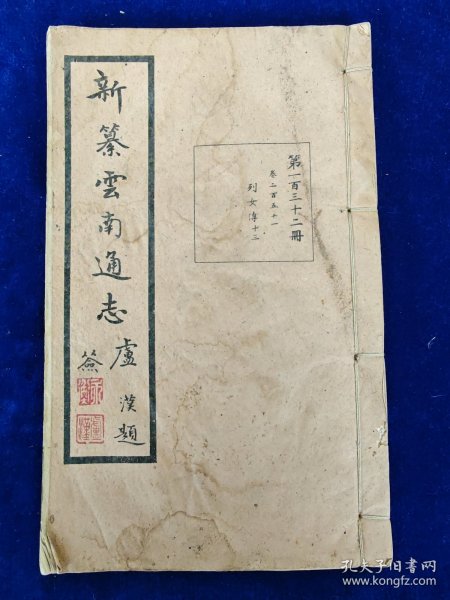 第一百三十二冊
卷二百五十一
列女傳十三
新纂雲南通志
盧漢題
簽
孔夫子旧书网
www.kongfz.com